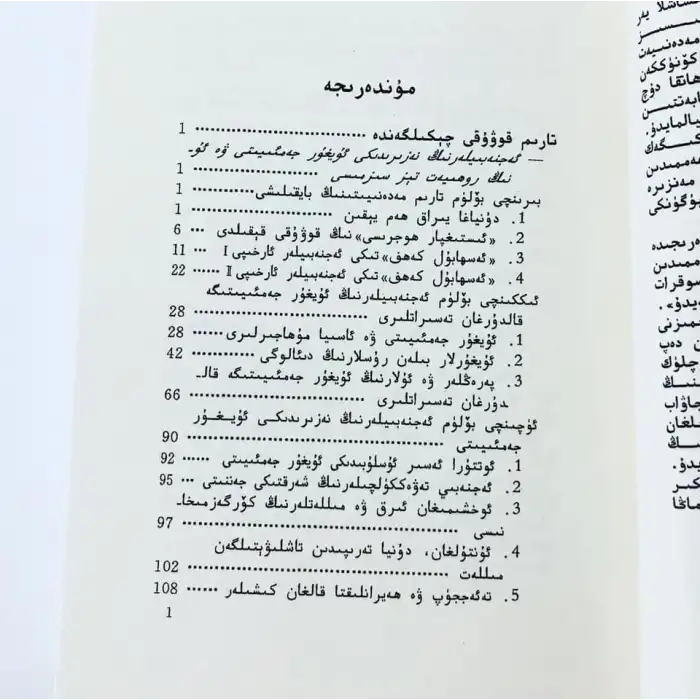 مۇندەرىجە
تارىم قوۋۇقى چېكىلگەندە ········ 1
— ئەجنەبىيلەرنىڭ نەزىرىدىكى ئۇيغۇر جەمئىيىتى ۋە ئۇ-
نىڭ روھىيەت تېز سىزمىسى ········ 1
بىرىنچى بۆلۈم تارىم مەدەنىيىتىنىڭ بايقىلىشى ········ 1
1. دۇنياغا يىراق ھەم يېقىن ········ 1
2. «ئىستىغپار ھوجرىسى»نىڭ قوۋۇقى قېقىلدى ········ 6
3. «ئەسھابۇل كەھف»تىكى ئەجنەبىيلەر ئارخىپى I ··· 11
4. «ئەسھابۇل كەھف»تىكى ئەجنەبىيلەر ئارخىپى II ······ 22
ئىككىنچى بۆلۈم ئەجنەبىيلەرنىڭ ئۇيغۇر جەمئىيىتىگە
قالدۇرغان تەسىراتلىرى ········ 28
1. ئۇيغۇر جەمئىيىتى ۋە ئاسىيا مۇھاجىرلىرى ······ 28
2. ئۇيغۇرلار بىلەن رۇسلارنىڭ دىئالوگى ········ 42
3. پەرەڭلەر ۋە ئۇلارنىڭ ئۇيغۇر جەمئىيىتىگە قالـ
دۇرغان تەسىراتلىرى ········ 66
ئۈچىنچى بۆلۈم ئەجنەبىيلەرنىڭ نەزىرىدىكى ئۇيغۇر
جەمئىيىتى ········ 90
1. ئوتتۇرا ئەسىر ئۇسلۇبىدىكى ئۇيغۇر جەمئىيىتى ······ 92
2. ئەجنەبىي تەۋەككۈلچىلەرنىڭ شەرقتىكى جەننىتى ····· 95
3. ئوخشىمىغان ئىرق ۋە مىللەتلەرنىڭ كۆرگەزمىخا-
نىسى ········ 97
4. ئۇنتۇلغان، دۇنيا تەرىپىدىن تاشلىۋېتىلگەن
مىللەت ········ 102
5. تەئەججۈپ ۋە ھەيرانلىقتا قالغان كىشىلەر ······ 108
1
مەدەنىيەت
كۆنۈككەن
يالمايدۇ.
مەنزىرە
بۈگۈنكى
سوقرات
دەپ
جاۋاب